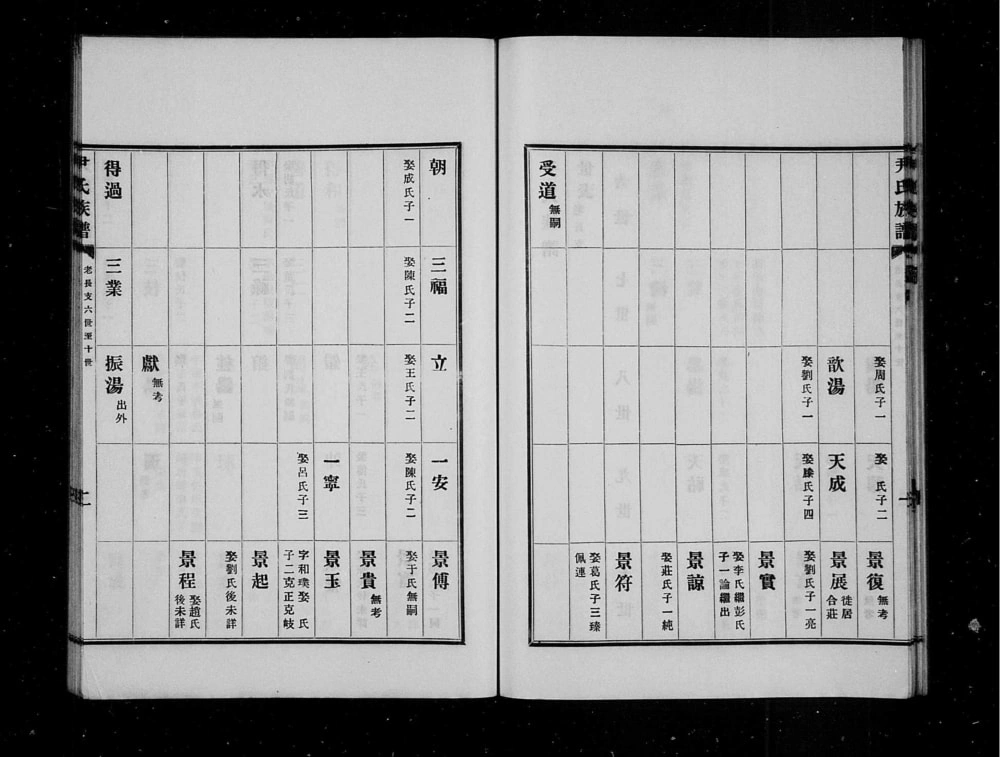 尹氏族譜
景復 無考
娶周氏子一
娶 氏子二
歆湯
天成
景展 徙居合莊
娶劉氏子一
娶滕氏子四
娶劉氏子一亮
景實
娶李氏繼彭氏
子一論繼出
景諒
娶莊氏子一純
景符
娶葛氏子三瑧
佩連
受道 無嗣
朝
三福
立
一安
景傅
娶成氏子一
娶陳氏子二
娶王氏子二
娶陳氏子二
娶于氏無嗣
景貴 無考
一寧
景玉
娶呂氏子三
字和璞娶 氏
子二克正克岐
景起
娶劉氏後未詳
景程 娶趙氏後未詳
獻 無考
得過
三業
振湯 出外
尹氏族譜
老長支六世至十世